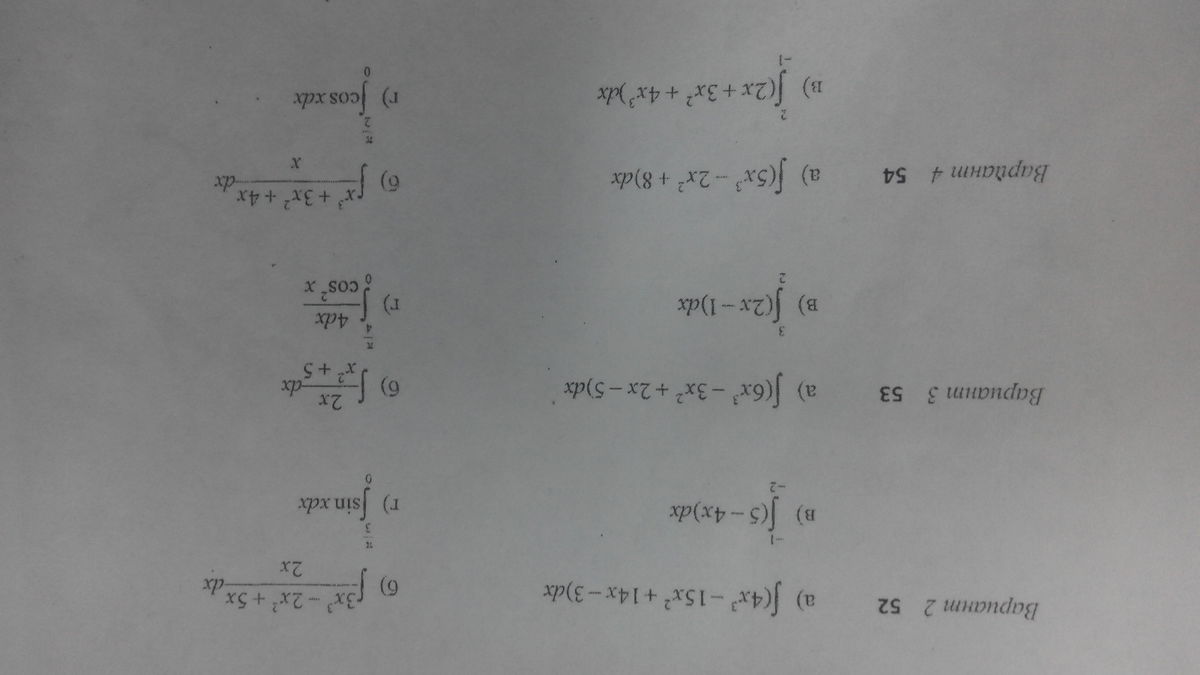 Вариант 2 52 а) ∫(4x³ − 15x² + 14x − 3)dx б) ∫ (3x³ − 2x² + 5x)/(2x) dx
в) ∫₋₂⁻¹ (5 − 4x)dx г) ∫₀^(π/3) sin xdx
Вариант 3 53 а) ∫(6x³ − 3x² + 2x − 5)dx б) ∫ 2x/(x² + 5) dx
в) ∫₂³ (2x − 1)dx г) ∫₀^(π/4) 4dx/cos² x
Вариант 4 54 а) ∫(5x³ − 2x² + 8)dx б) ∫ (x³ + 3x² + 4x)/x dx
в) ∫₋₁² (2x + 3x² + 4x³)dx г) ∫₀^(π/2) cos xdx